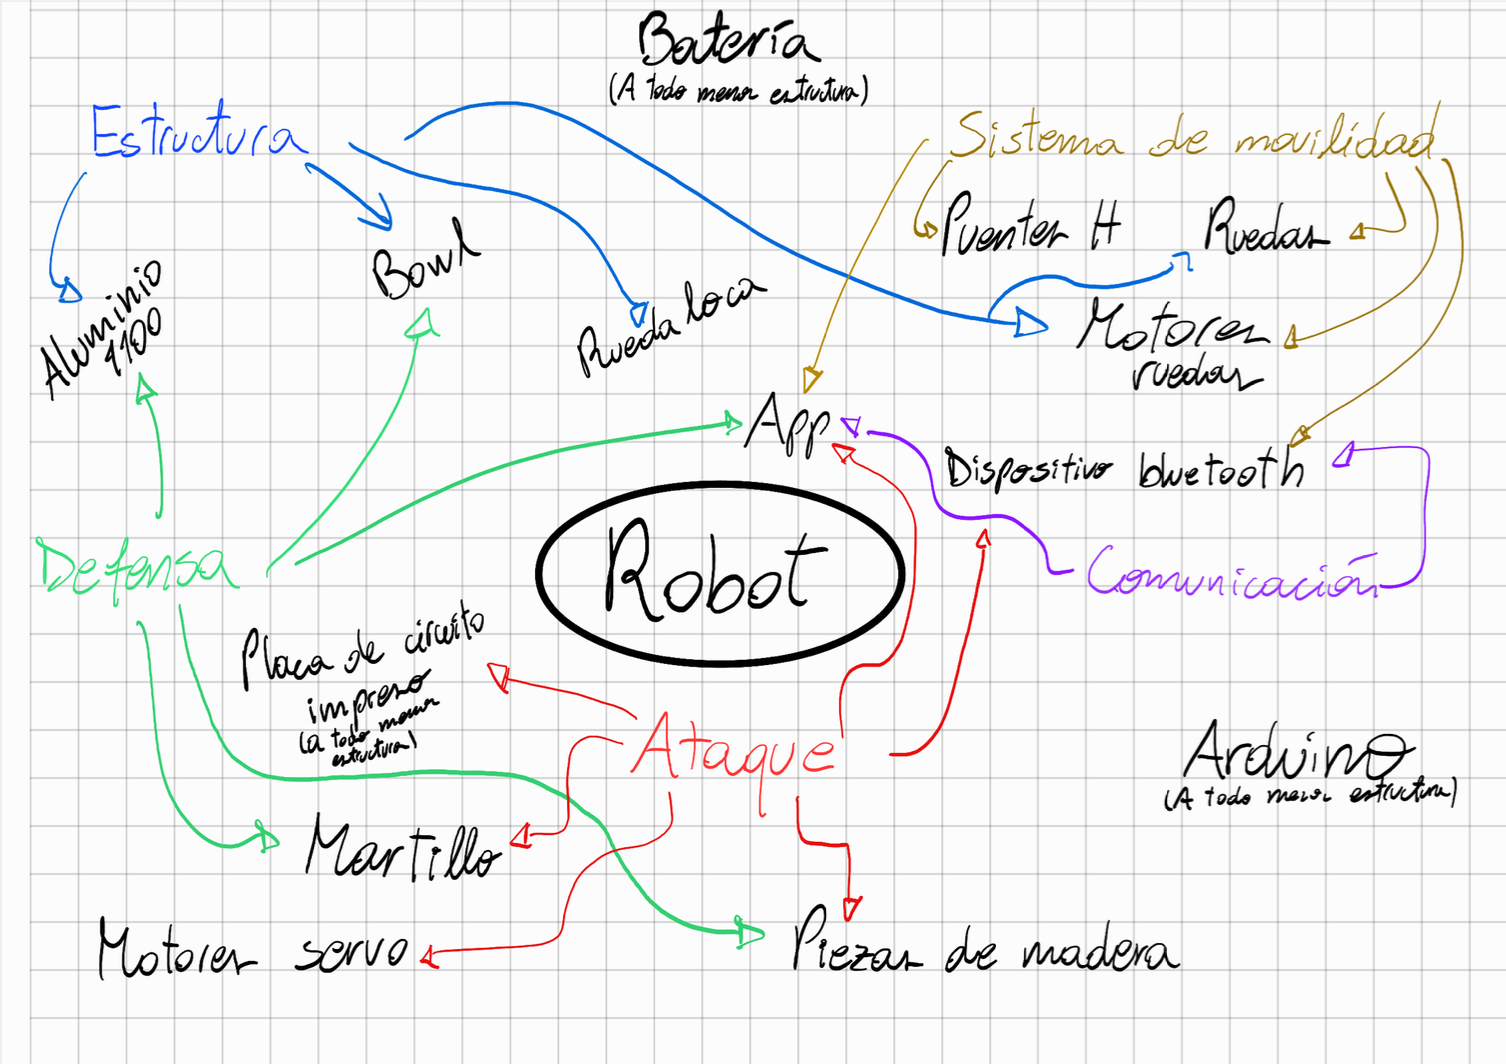 Batería
(A todo menos estructura)
Estructura
Sistema de movilidad
Puentes H
Ruedas
Bowl
Aluminio
1100
Rueda loca
Motores
ruedas
App
Dispositivo bluetooth
Defensa
Robot
Comunicación
Placa de circuito
impreso
(a todo menos
estructura)
Ataque
Arduino
(A todo menos estructura)
Martillo
Motores servo
Piezas de madera